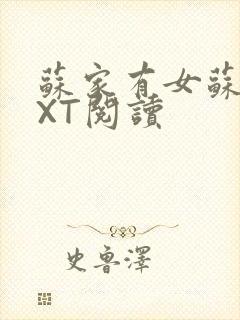 蘇家有女蘇
XT閱讀
史魯澤